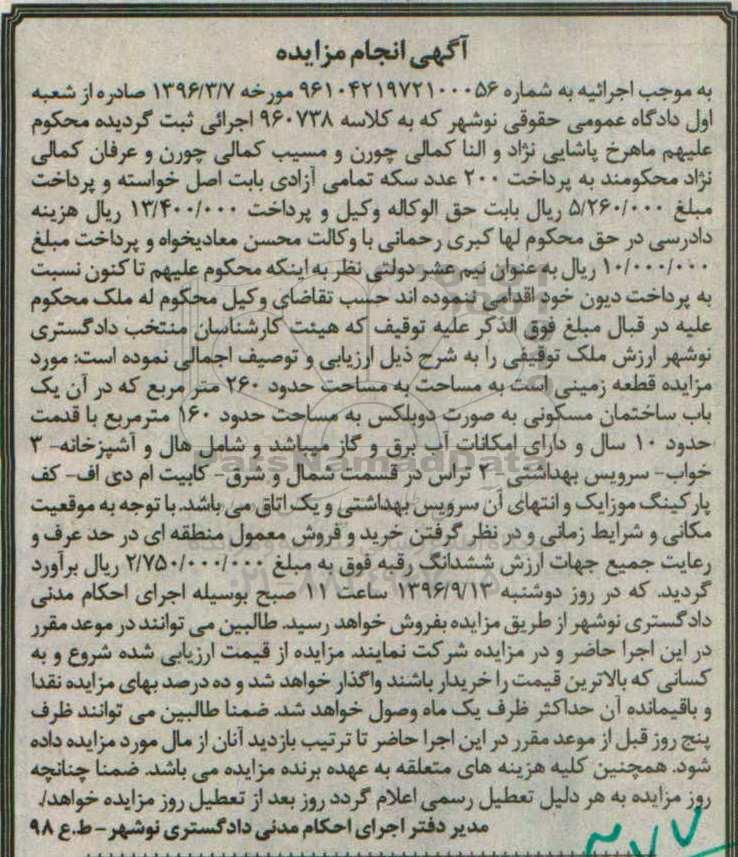 آگهی انجام مزایده
به موجب اجرائیه به شماره ۹۶۱۰۴۲۱۹۷۲۱۰۰۰۵۶ مورخه ۱۳۹۶/۳/۷ صادره از شعبه
اول دادگاه عمومی حقوقی نوشهر که به کلاسه ۹۶۰۷۳۸ اجرائی ثبت گردیده محکوم
علیهم ماهرخ پاشایی نژاد و النا کمالی چورن و مسیب کمالی چورن و عرفان کمالی
نژاد محکومند به پرداخت ۲۰۰ عدد سکه تمامی آزادی بابت اصل خواسته و پرداخت
مبلغ ۵/۲۶۰/۰۰۰ ریال بابت حق الوکاله وکیل و پرداخت ۱۳/۴۰۰/۰۰۰ ریال هزینه
دادرسی در حق محکوم لها کبری رحمانی با وکالت محسن معادیخواه و پرداخت مبلغ
۱۰/۰۰۰/۰۰۰ ریال به عنوان نیم عشر دولتی نظر به اینکه محکوم علیهم تا کنون نسبت
به پرداخت دیون خود اقدامی ننموده اند حسب تقاضای وکیل محکوم له ملک محکوم
علیه در قبال مبلغ فوق الذکر علیه توقیف که هیئت کارشناسان منتخب دادگستری
نوشهر ارزش ملک توقیفی را به شرح ذیل ارزیابی و توصیف اجمالی نموده است: مورد
مزایده قطعه زمینی است به مساحت به مساحت حدود ۲۶۰ متر مربع که در آن یک
باب ساختمان مسکونی به صورت دوبلکس به مساحت حدود ۱۶۰ مترمربع با قدمت
حدود ۱۰ سال و دارای امکانات آب برق و گاز میباشد و شامل هال و آشپزخانه- ۳
خواب- سرویس بهداشتی- ۲ تراس در قسمت شمال و شرق- کابیت ام دی اف- کف
پارکینگ موزایک و انتهای آن سرویس بهداشتی و یک اتاق می باشد. با توجه به موقعیت
مکانی و شرایط زمانی و در نظر گرفتن خرید و فروش معمول منطقه ای در حد عرف و
رعایت جمیع جهات ارزش ششدانگ رقبه فوق به مبلغ ۲/۷۵۰/۰۰۰/۰۰۰ ریال برآورد
گردید. که در روز دوشنبه ۱۳۹۶/۹/۱۳ ساعت ۱۱ صبح بوسیله اجرای احکام مدنی
دادگستری نوشهر از طریق مزایده بفروش خواهد رسید. طالبین می توانند در موعد مقرر
در این اجرا حاضر و در مزایده شرکت نمایند. مزایده از قیمت ارزیابی شده شروع و به
کسانی که بالاترین قیمت را خریدار باشند واگذار خواهد شد و ده درصد بهای مزایده نقدا
و باقیمانده آن حداکثر ظرف یک ماه وصول خواهد شد. ضمنا طالبین می توانند ظرف
پنج روز قبل از موعد مقرر در این اجرا حاضر تا ترتیب بازدید آنان از مال مورد مزایده داده
شود. همچنین کلیه هزینه های متعلقه به عهده برنده مزایده می باشد. ضمنا چنانچه
روز مزایده به هر دلیل تعطیل رسمی اعلام گردد روز بعد از تعطیل روز مزایده خواهد/.
مدیر دفتر اجرای احکام مدنی دادگستری نوشهر- ط.ع ۹۸
ParsNamadData